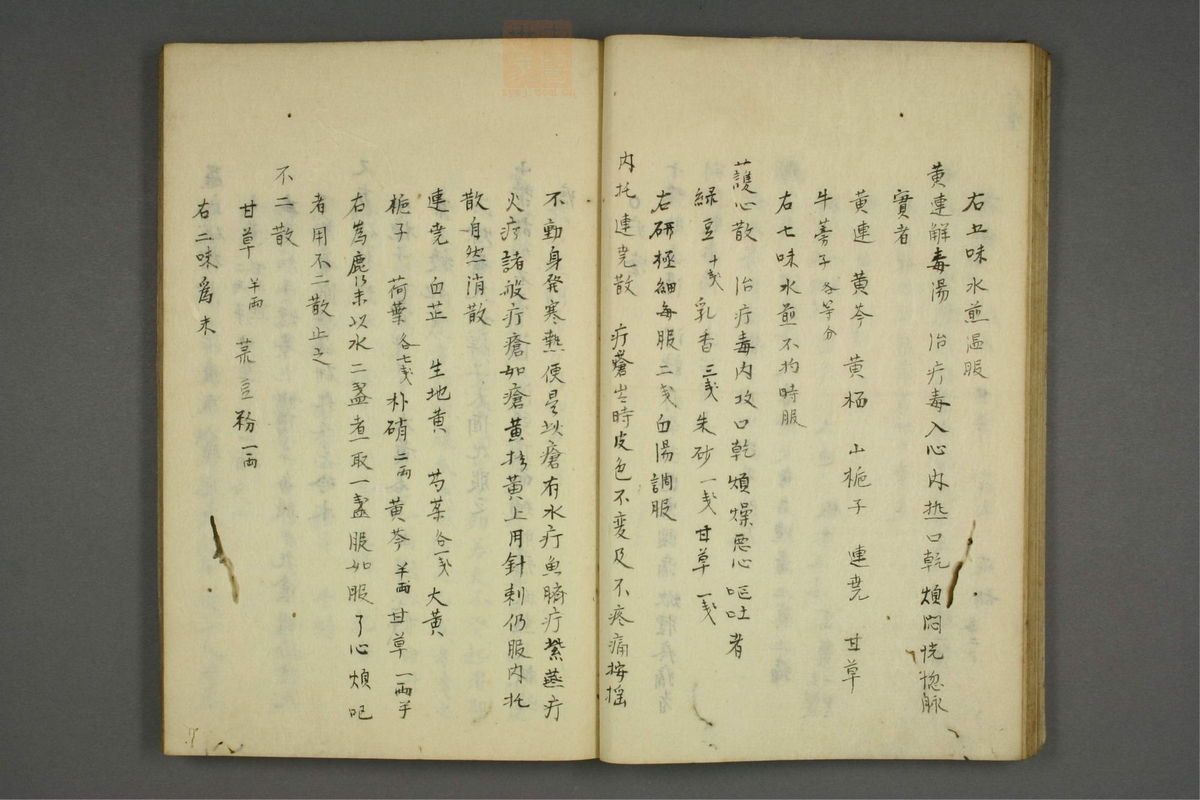 右五味水煎温服
黄連解毒湯　治疔毒入心内热口乾煩悶恍惚脉
實者
黄連　黄芩　黄栢　山梔子　連堯　甘草
牛蒡子各等分
右七味水煎不拘時服
護心散　治疔毒内攻口乾煩燥悪心嘔吐者
緑豆十戔　乳香三戔　朱砂一戔　甘草一戔
右研極細毎服二戔白湯調服
内托連堯散　疔瘡出時皮色不変及不疼痛按揺
不動身発寒熱便是此瘡有水疔魚臍疔紫燕疔
火疔諸般疔瘡如瘡黄於黄上用針刺仍服内托
散自然消散
連堯　白芷　生地黄　芍薬各一戔　大黄
梔子　荷葉各七戔　朴硝二両　黄芩半両　甘草一両半
右爲麁末以水二盞煮取一盞服如服了心煩呕
者用不二散止之
不二散
甘草半両　荒豆粉一両
右二味爲末